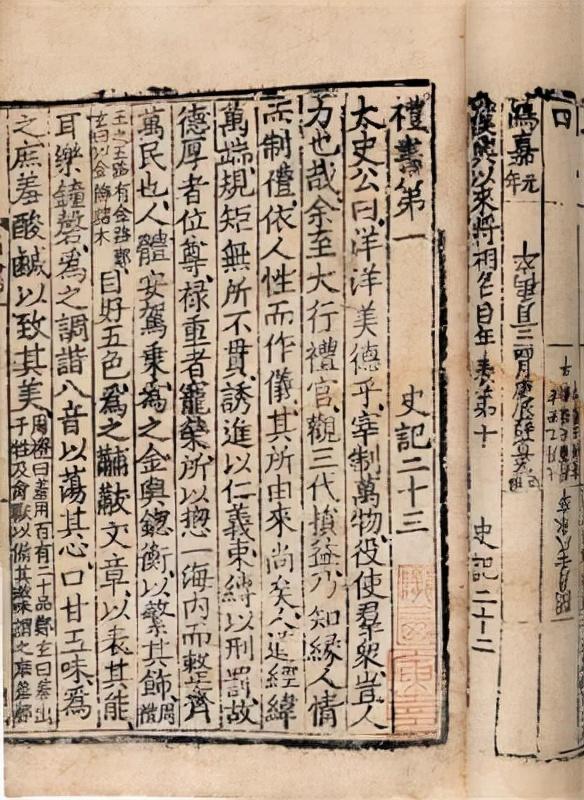 鴻嘉元年
漢興以來將相名臣年表第十 史記二十二
禮書第一 史記二十三
太史公曰洋洋美德乎宰制萬物役使羣衆豈人
力也哉余至大行禮官觀三代損益乃知緣人情
而制禮依人性而作儀其所由來尚矣人道經緯
萬端規矩無所不貫誘進以仁義束縛以刑罰故
德厚者位尊祿重者寵榮所以揔一海内而整齊
萬民也人體安駕乗爲之金輿錯衡以繁其飾周禮
王之五路有金路鄭玄曰以金飾諸末目好五色爲之黼黻文章以表其能
耳樂鐘磬爲之調諧八音以蕩其心口甘五味爲
之庶羞酸鹹以致其美周禮曰羞用百有二十品鄭玄曰羞出于牲及禽獸以備其滋味謂之庶羞鄭